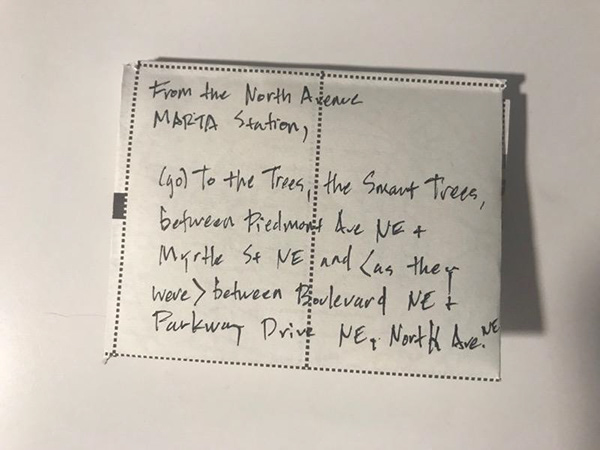 From the North Avenue
MARTA Station,
(go) To the Trees, the Smart Trees,
between Piedmont Ave NE +
Myrtle St NE and <as they
were> between Boulevard NE +
Parkway Drive NE, North Ave. NE